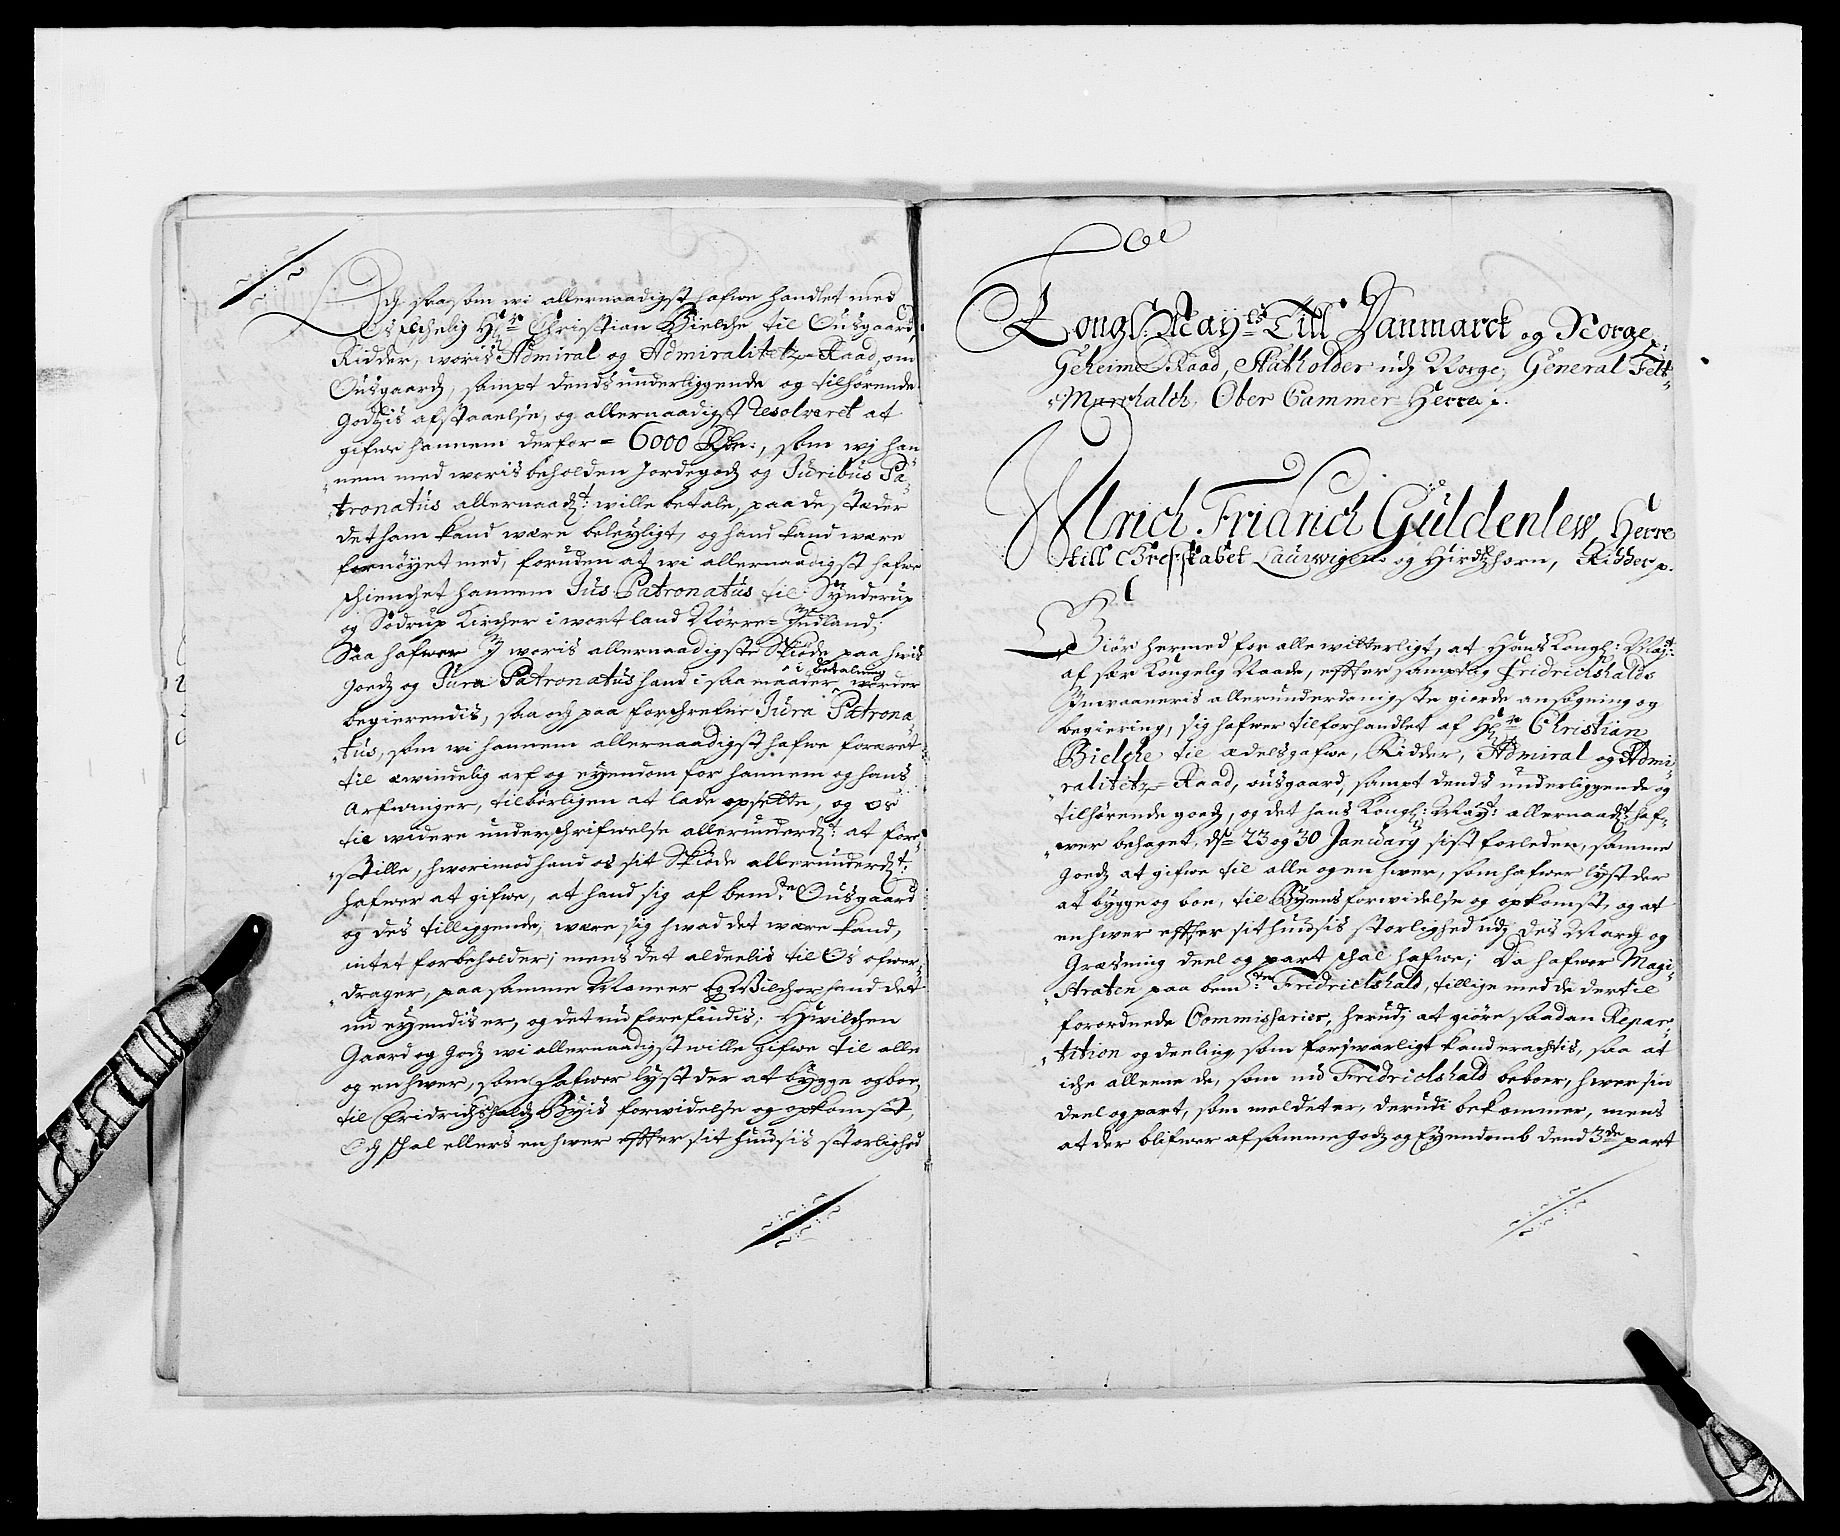 Och saasom wi allernaadigst hafwe handlet med
Os Elschelig Hr. Christian Bielche til Ousgaard,
Ridder, woris Admiral og Admiralitetz-Raad, om
Ousgaardz, sampt dends underliggende og tilhørende
Godzis afstaaelse, og allernaadigst resolveret at
gifwe hannem derfor = 6000 Rdr:, som wj han-
nem med woris beholden Jordegodz og Juribus Pa-
tronatus allernaadst: wille betale, paa de stæder
det ham kand være beleyligt, og hand kand wære
fornøyet med, foruden at wi allernaadigst hafwe
schienchet hannem Jus Patronatus til Synderup
og Sødrup Kircher i wort land Nørre-Judland;
Saa hafwer J woris allernaadigste Skiøde paa hwis
Goedz og Jura Patronatus hand i saa maader i betalning worder
begierendis, saa och paa forschrefne Jura Patrona-
tus, som wi hannem allernaadigst hafwe foræret
til ewindelig arf og eyendom for hannem og hans
Arfwinger, tilbørligen at lade opsette, og os
til widere underschrifwelse allerunderdst: at fore-
stille, hworimod hand os sit Skiøde allerunderdst:
hafwer at gifwe, at hand sig af bemte Ousgaard
og des tilliggende, wære sig hwad det wære kand,
intet forbeholder; mens det aldeelis til Os ofwer-
drager, paa samme Maneer Eg. Bilche hand det
nu eyendis er, og det nu forefindis; Hwilchen
Gaard og Godz wi allernaadigst wille gifwe til alle
og enhwer, som hafwer lyst der at bygge og boe,
til Fridrichshaldz Byis forwidelse og opkomst,
Och schal ellers enhwer effter sit huusis storlighed

Kongl: Mayts Till Danmarck og Norge p:
Geheime Raad, Statholder udj Norge, General Felt-
Marchalch, Ober Cammer Herre p.
Ulrich Fridrich Güldenlew, Herre
till Grefskabet Laurwigen og Hirdtzhorn, Ridder p.
Giør hermed for alle witterligt, at Hans Kongl: Mayt:
af sær Kongelig Naade, effter samptlig Fridrichshalds
Jnwaaneris allerunderdanigste giorde ansøgning og
begiering, sig hafwer tilforhandlet af Hr. Christian
Bielche til Ædelsgafwe, Ridder, Admiral og Admi-
ralitetz-Raad, ousgaard, sampt dends underliggende og
tilhørende goedz, og det hans Kongl: Mayt: allernaadst haf-
wer behaget, dn 23 og 30 January sist forleden, samme
Goedz at gifwe til alle og en hwer, som hafwer lyst der
at bygge og boe, til Byens forwidelse og opkomst, og at
enhwer effter sit huusis storlighed udj des March og
Græsning deel og part schal hafwe; Da hafwer Magi-
straten paa bemte Fridrichshald, tillige med de dertil
forordnede Commissarier, herudj at giøre saadan Repar-
tition og deeling som forswarligt kand eragtis, saa at
iche alleene de, som nu Fridrichshald beboer, hwer sin
deel og part, som meldet er, derudi bekommer, mens
at der blifwer af samme Godz og Eyendomb dend 3de part